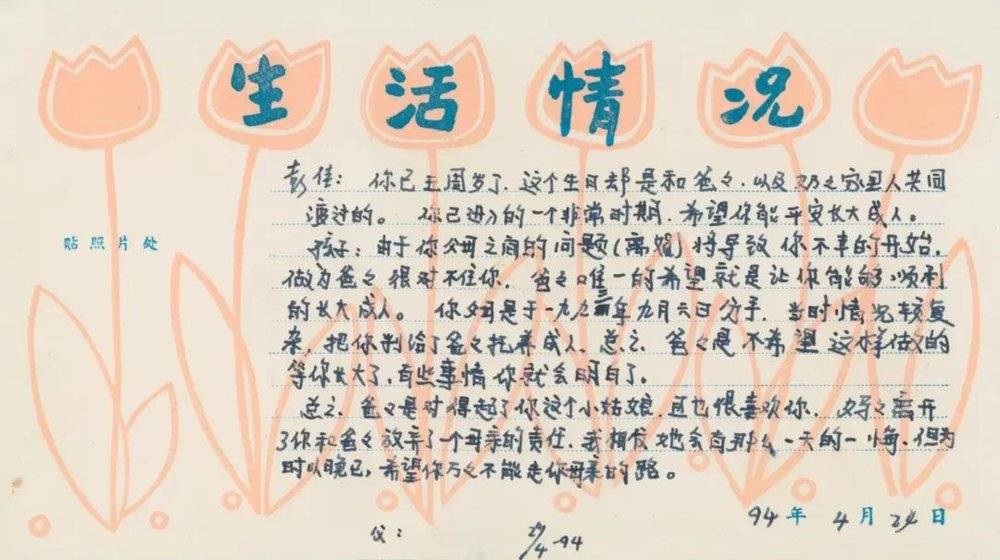 生活情况
贴照片处
彭佳：你已五周岁了，这个生日却是和爸々、以及奶々家里人共同
渡过的。你已进入的一个非常时期，希望你能平安长大成人。
孩子：由于你父母之间的问题(离婚)将导致你不幸的开始，
做为爸々很对不住你，爸々唯一的希望就是让你能够顺利
的长大成人。你父母是于一九九三年九月六日分手，当时情况较复
杂，把你判给了爸々抚养成人、总之，爸々是不希望这样做的
等你长大了，有些事情你就会明白了。
总之，爸々是对得起了你这个小姑娘，且也很喜欢你，妈々离开
了你和爸々放弃了一个母亲的责任，我相信她会有那么一天的一悔、但为
时以晚已，希望你万々不能走你母亲的路。
94年4月24日
父：